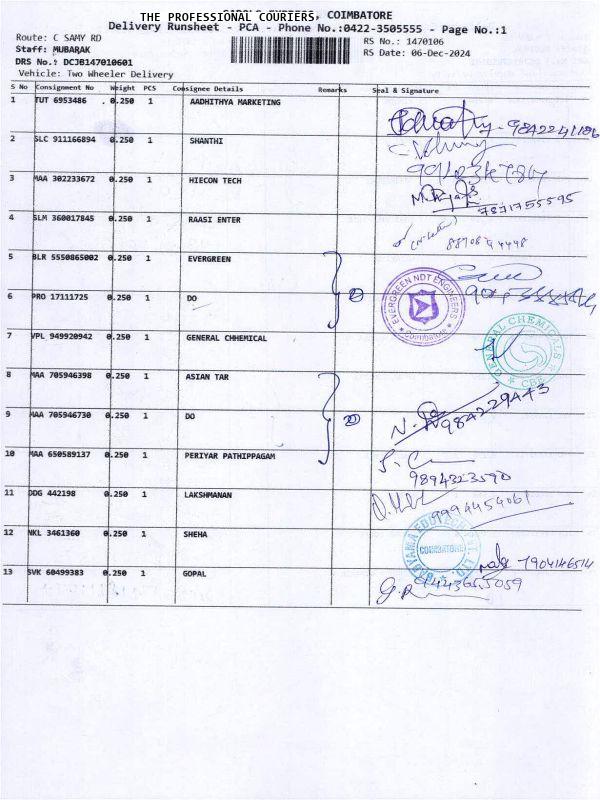 THE PROFESSIONAL COURIERS, COIMBATORE
Delivery Runsheet - PCA - Phone No.:0422-3505555 - Page No.:1
Route: C SAMY RD
RS No.: 1470106
Staff: MUBARAK
RS Date: 06-Dec-2024
DRS No.: DCJB147010601
Vehicle: Two Wheeler Delivery
S No Consignment No Weight PCS Consignee Details Remarks Seal & Signature
1 TUT 6953486 0.250 1 AADHITHYA MARKETING
2 SLC 911166894 0.250 1 SHANTHI
3 MAA 302233672 0.250 1 HIECON TECH
7871755595
4 SLM 360017845 0.250 1 RAASI ENTER
5 BLR 5550865002 0.250 1 EVERGREEN
EVERGREEN NDT ENGINEERS
Coimbatore
6 PRO 17111725 0.250 1 DO
7 VPL 949920942 0.250 1 GENERAL CHHEMICAL
GENARAL CHEMICALS
CBE
8 MAA 705946398 0.250 1 ASIAN TAR
9 MAA 705946730 0.250 1 DO
9842229443
10 MAA 650589137 0.250 1 PERIYAR PATHIPPAGAM
9894323590
11 DDG 442198 0.250 1 LAKSHMANAN
9994454061
12 NKL 3461360 0.250 1 SHEHA
COIMBATORE
7904146514
13 SVK 60499383 0.250 1 GOPAL
9443655059